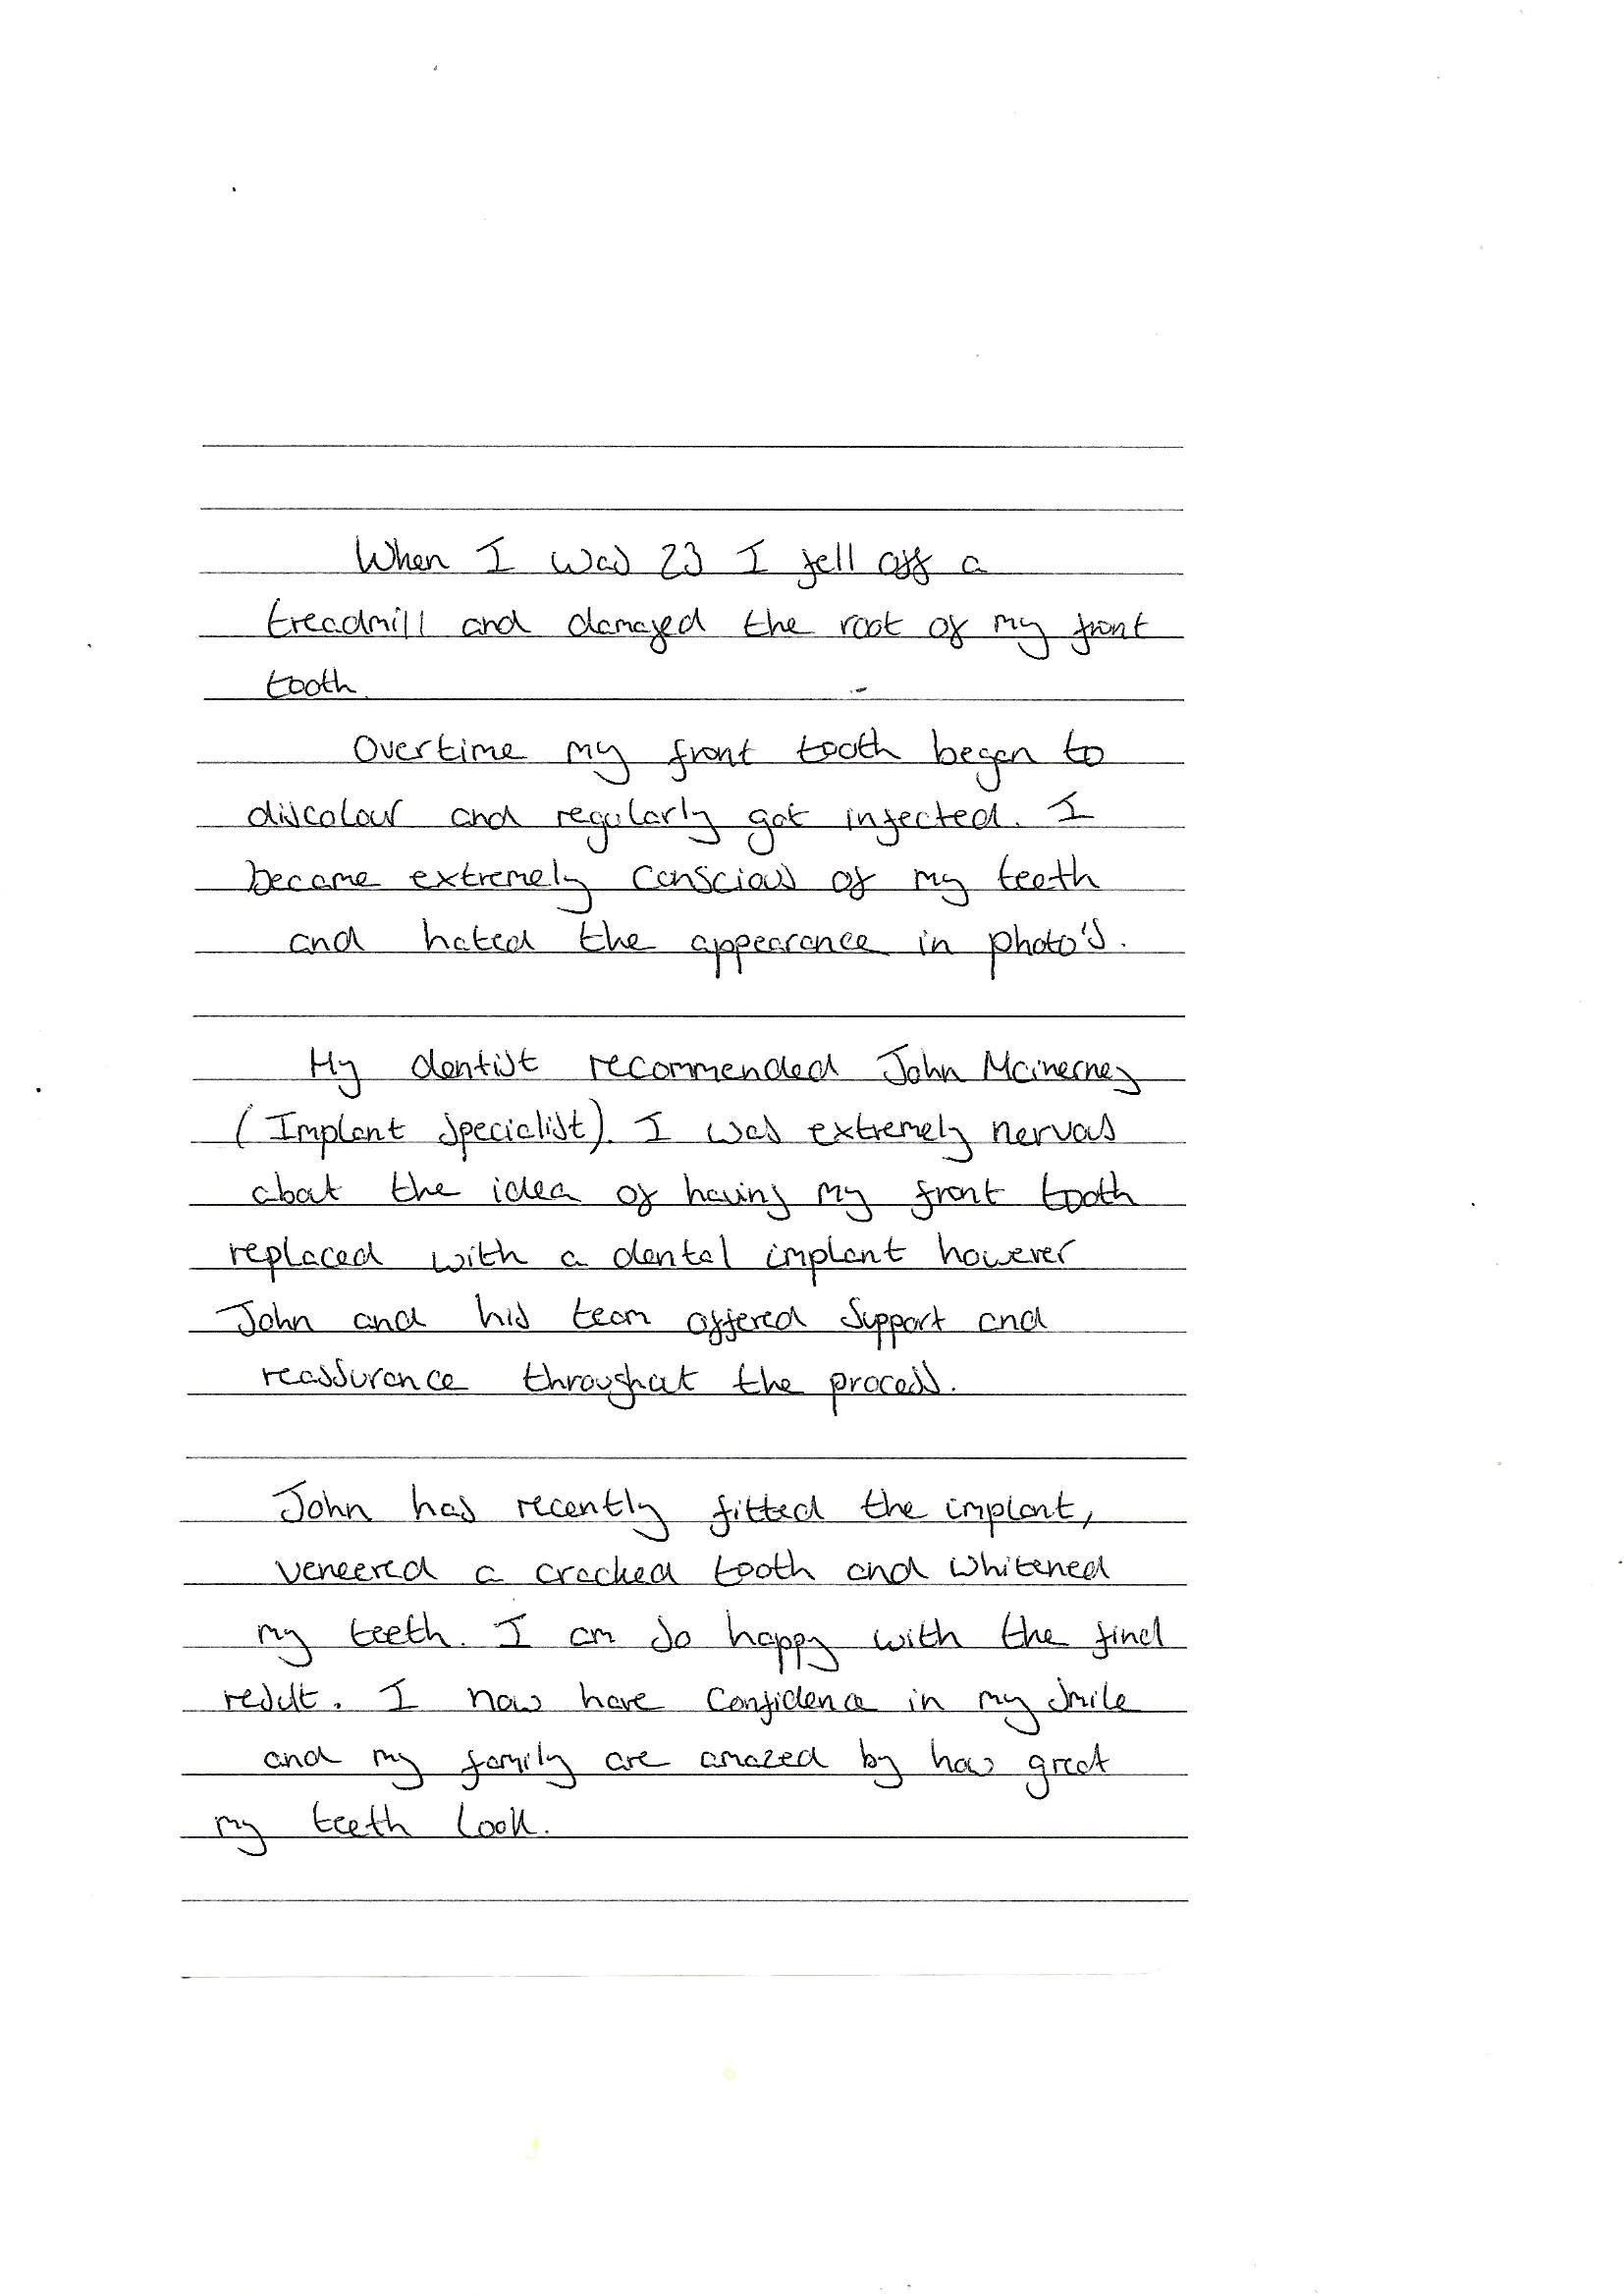 When I was 23 I fell off a
treadmill and damaged the root of my front
tooth.
Overtime my front tooth began to
discolour and regularly got infected. I
became extremely conscious of my teeth
and hated the appearance in photo's.
My dentist recommended John Mcinerney
(Implant specialist). I was extremely nervous
about the idea of having my front tooth
replaced with a dental implant however
John and his team offered support and
reassurance throughout the process.
John has recently fitted the implant,
veneered a cracked tooth and whitened
my teeth. I am so happy with the final
result. I now have confidence in my smile
and my family are amazed by how great
my teeth look.